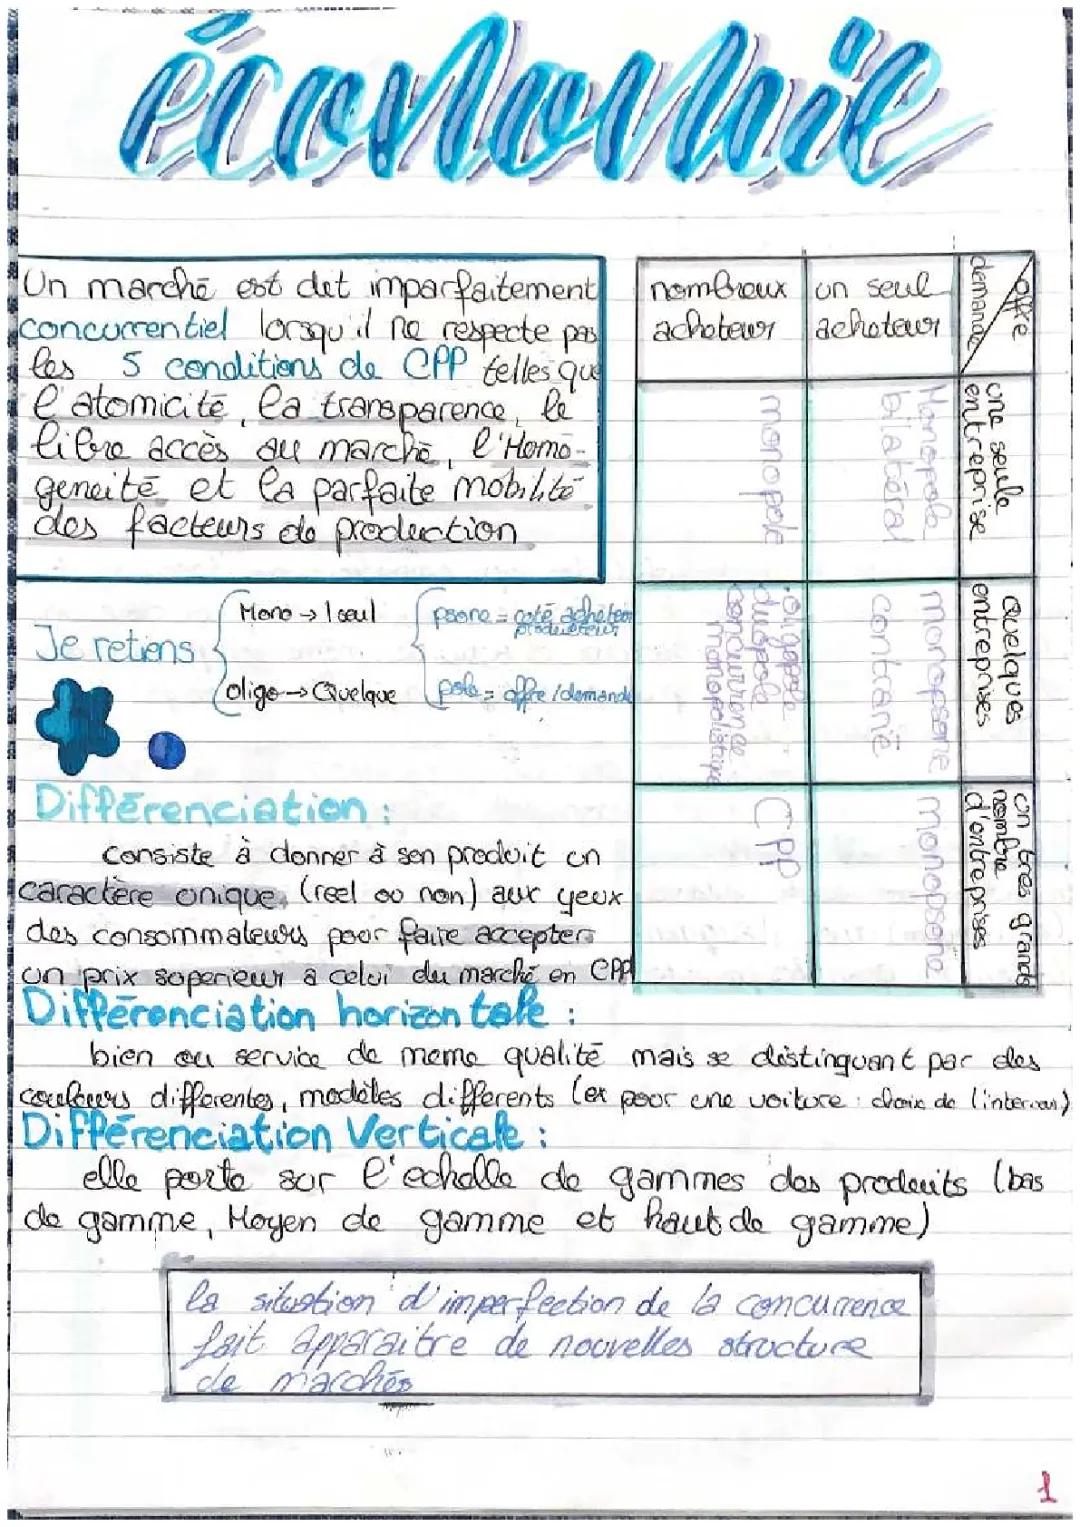 économie
Un marché est dit imparfaitement
concurrentiel lorsqu'il ne respecte pas
les 5 conditions de CPP telles que
l'atomicité, la transparence, le
libre accès au marché, l'Homo-
geneité et la parfaite mobilité
des facteurs de production
offre
demande
une seule
entreprise
Quelques
entreprises
un tres grands
nombre
d'entreprises
un seul
acheteur
Monopole
bilatéral
monopsone
contrarié
monopsone
nombreux
acheteur
monopole
oligopole
duopole
concurrence
monopolistique
CPP
Je retiens
Mono → 1 seul
oligo → Quelque
psone = coté acheteur
producteur
pole = offre / demande
Différenciation :
consiste à donner à son produit un
caractère unique (reel ou non) aux yeux
des consommateurs pour faire accepter
un prix superieur a celui du marché en CPP
Différenciation horizontale :
bien ou service de meme qualité mais se distinguant par des
couleurs differentes, modèles differents (ex pour une voiture : choix de l'interieur)
Différenciation Verticale :
elle porte sur l'echelle de gammes des produits (bas
de gamme, Moyen de gamme et haut de gamme)
la situation d'imperfection de la concurrence
fait apparaitre de nouvelles structure
de marchés
1